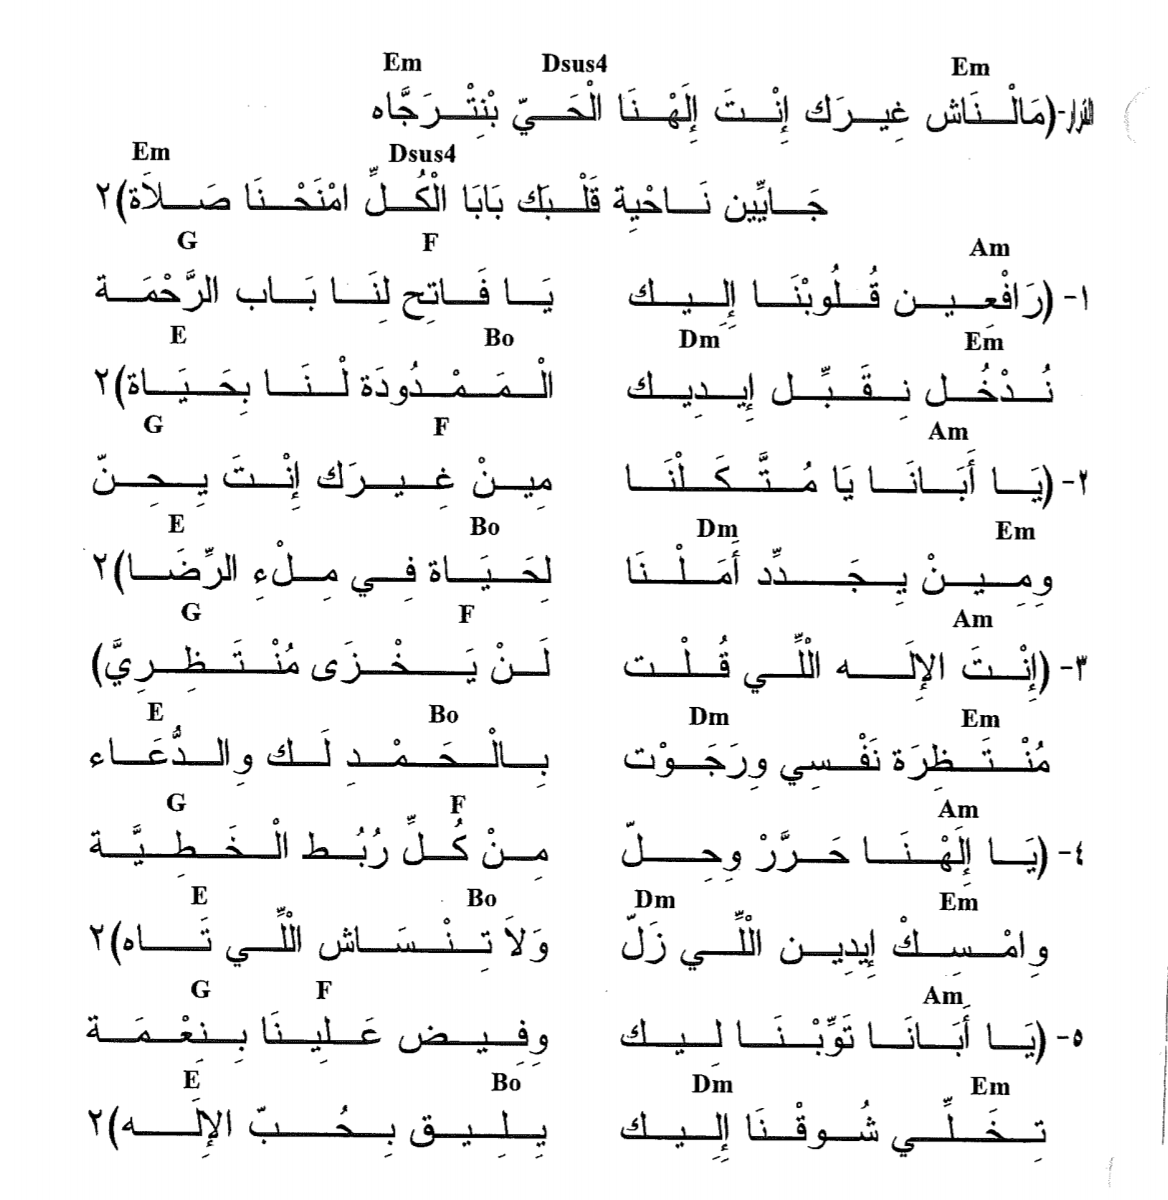 Em Dsus4 Em
القرار-(مَالْنَاش غِيرَك إِنْتَ إِلَهْنَا الْحَيّ بْنِتْرَجَّاه
Em Dsus4
جَايِّين نَاحْيِة قَلْبَك بَابَا الْكُلِّ امْنَحْنَا صَلاَة)٢
G F Am
١- (رَافْعِين قُلُوبْنَا إِلِيك يَا فَاتِح لِنَا بَاب الرَّحْمَة
E Bo Dm Em
نُدْخُل نِقَبِّل إِيدِيك الْمَمْدُودَة لْنَا بِحَيَاة)٢
G F Am
٢- (يَا أَبَانَا يَا مُتَّكَلْنَا مِينْ غِيرَك إِنْتَ يِحِنّ
E Bo Dm Em
ومِينْ يِجَدِّد أَمَلْنَا لِحَيَاة فِي مِلْءِ الرِّضَا)٢
G F Am
٣- (إِنْتَ الإِلَه اللِّي قُلْت لَنْ يَخْزَى مُنْتَظِرِيَّ)
E Bo Dm Em
مُنْتَظِرَة نَفْسِي ورَجَوْت بِالْحَمْدِ لَك والدُّعَاء
G F Am
٤- (يَا إِلَهْنَا حَرَّرْ وِحِلّ مِنْ كُلِّ رُبُط الْخَطِيَّة
E Bo Dm Em
وِامْسِكْ إِيدِين اللِّي زَلّ وَلاَ تِنْسَاش اللِّي تَاه)٢
G F Am
٥- (يَا أَبَانَا تَوِّبْنَا لِيك وِفِيض عَلِينَا بِنِعْمَة
E Bo Dm Em
تِخَلِّي شُوقْنَا إِلِيك يِلِيق بِحُبّ الإِلَه)٢